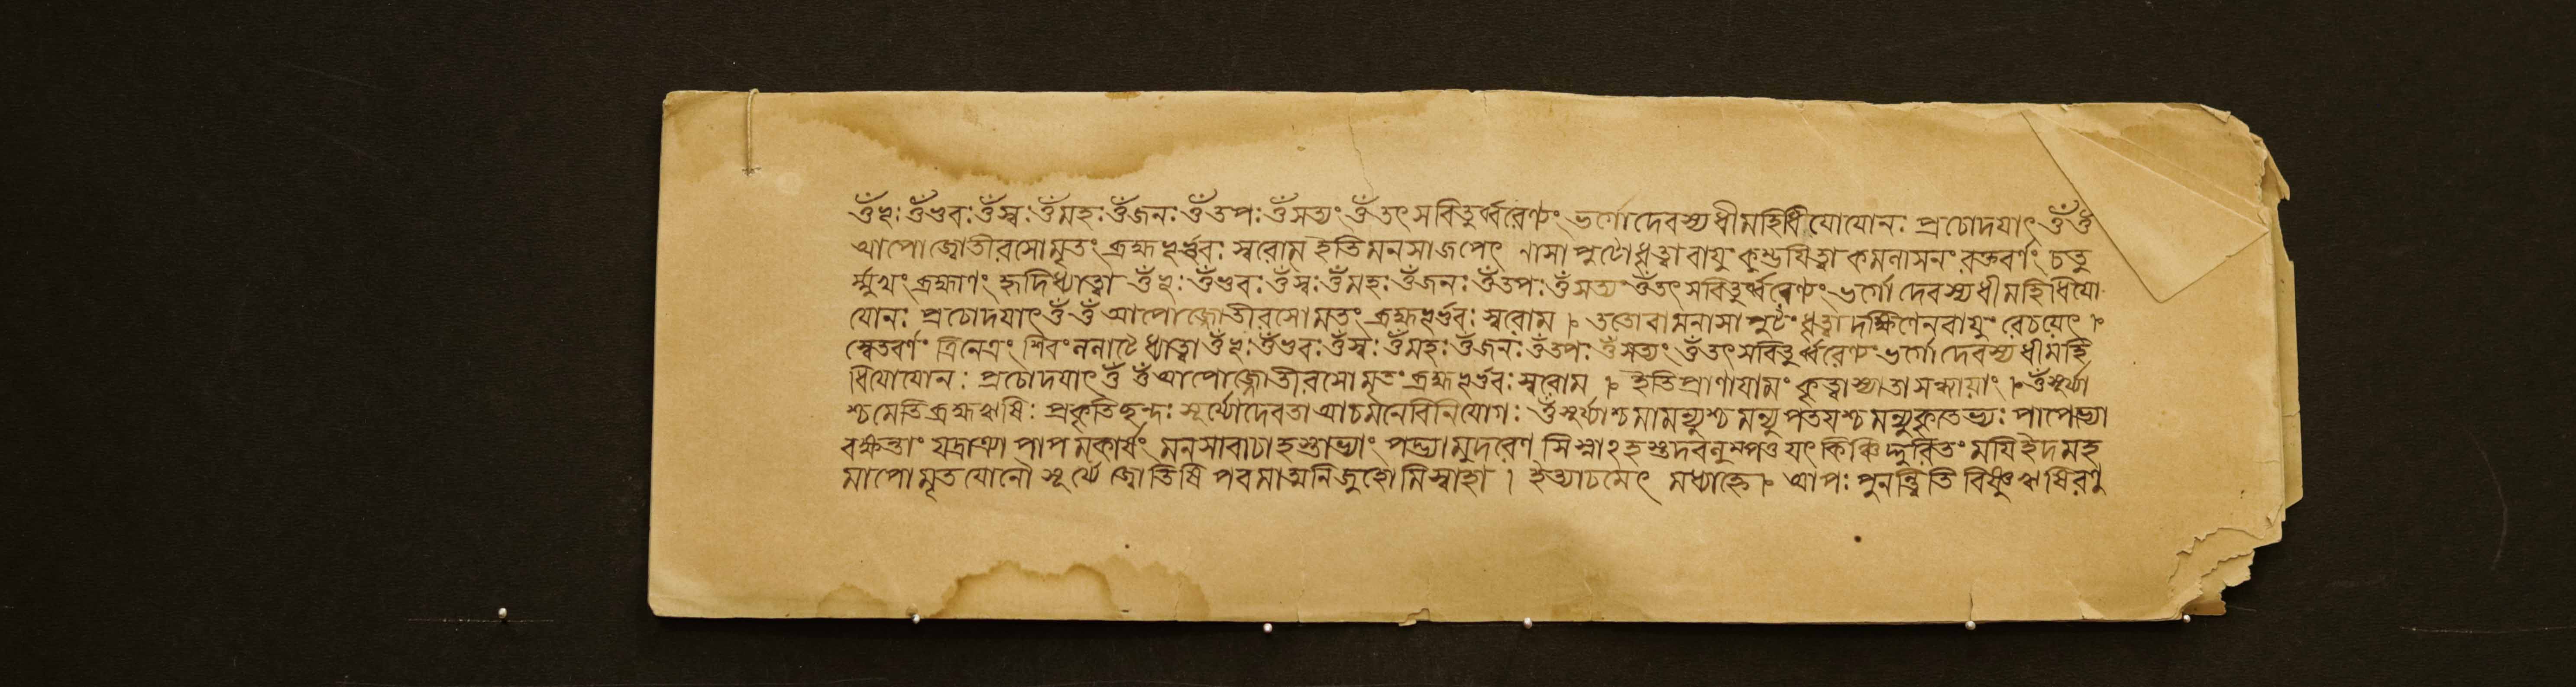 ওঁভূঃওঁভুবঃওঁস্বঃওঁমহঃওঁজনঃওঁতপঃওঁসত্যংওঁতৎসবিতুর্ব্বরেণ্যং ভর্গোদেবস্যধীমহিধীয়োযোনঃ প্রচোদয়াৎওঁওঁ
আপোজ্যোতীরসোমৃতং ব্রহ্মভূর্ভুবঃ স্বরোম্ ইতিমনসাজপেৎ নাসাপুটৌধৃত্বাবায়ুং কুম্ভয়িত্বা কমলাসনং রক্তবর্ণং চতু
র্ম্মুখং ব্রহ্মাণং হৃদিধ্যাত্বো ওঁভূঃওঁভুবঃওঁস্বঃওঁমহঃওঁজনঃওঁতপঃওঁসত্যংওঁতৎসবিতুর্ব্বরেণ্যং ভর্গোদেবস্যধীমহিধিয়ো
যোনঃ প্রচোদয়াৎওঁওঁআপোজ্যোতীরসোমতং ব্রহ্মভূর্ভুবঃ স্বরোম । ততোবামনাসাপুটং ধৃত্বা দক্ষিণেনবায়ুং রেচয়েৎ ।
শ্বেতবর্ণং ত্রিনেত্রং শিবং ললাটে ধ্যাত্বো ওঁভূঃওঁভুবঃওঁস্বঃওঁমহঃওঁজনঃওঁতপঃওঁসত্যংওঁতৎসবিতুর্ব্বরেণ্যং ভর্গোদেবস্যধীমহি
ধিয়োযোনঃ প্রচোদয়াৎওঁওঁআপোজ্যোতীরসোমৃতং ব্রহ্মভূর্ভুবঃ স্বরোম । ইতিপ্রাণায়ামং কৃত্বা প্রাতঃসন্ধ্যায়াং । ওঁসূর্য্যা
শ্চমেতিব্রহ্মঋষিঃ প্রকৃতিছন্দঃ সূর্য্যোদেবতা আচমনেবিনিয়োগঃ ওঁসূর্য্যাশ্চমামন্যুশ্চমন্যুপতয়শ্চমন্যুকৃতেভ্যঃ পাপেভ্যো
রক্ষন্তাং যদ্রাত্র্যা পাপমকার্য্যং মনসাবাচাহস্তাভ্যাং পদ্ভ্যামুদরেণ সিশ্নাঽহস্তদবলুম্পতু যৎ কিঞ্চিদ্দুরিতং ময়িইদমহ
মাপোমৃতযোনৌ সূর্য্যে জ্যোতিষি পরমাত্মনিজুহোমিস্বাহা । ইত্যাচমেৎ মধ্যাহ্নে । আপঃ পুনন্ত্বিতি বিষ্ণুঋষিরনু